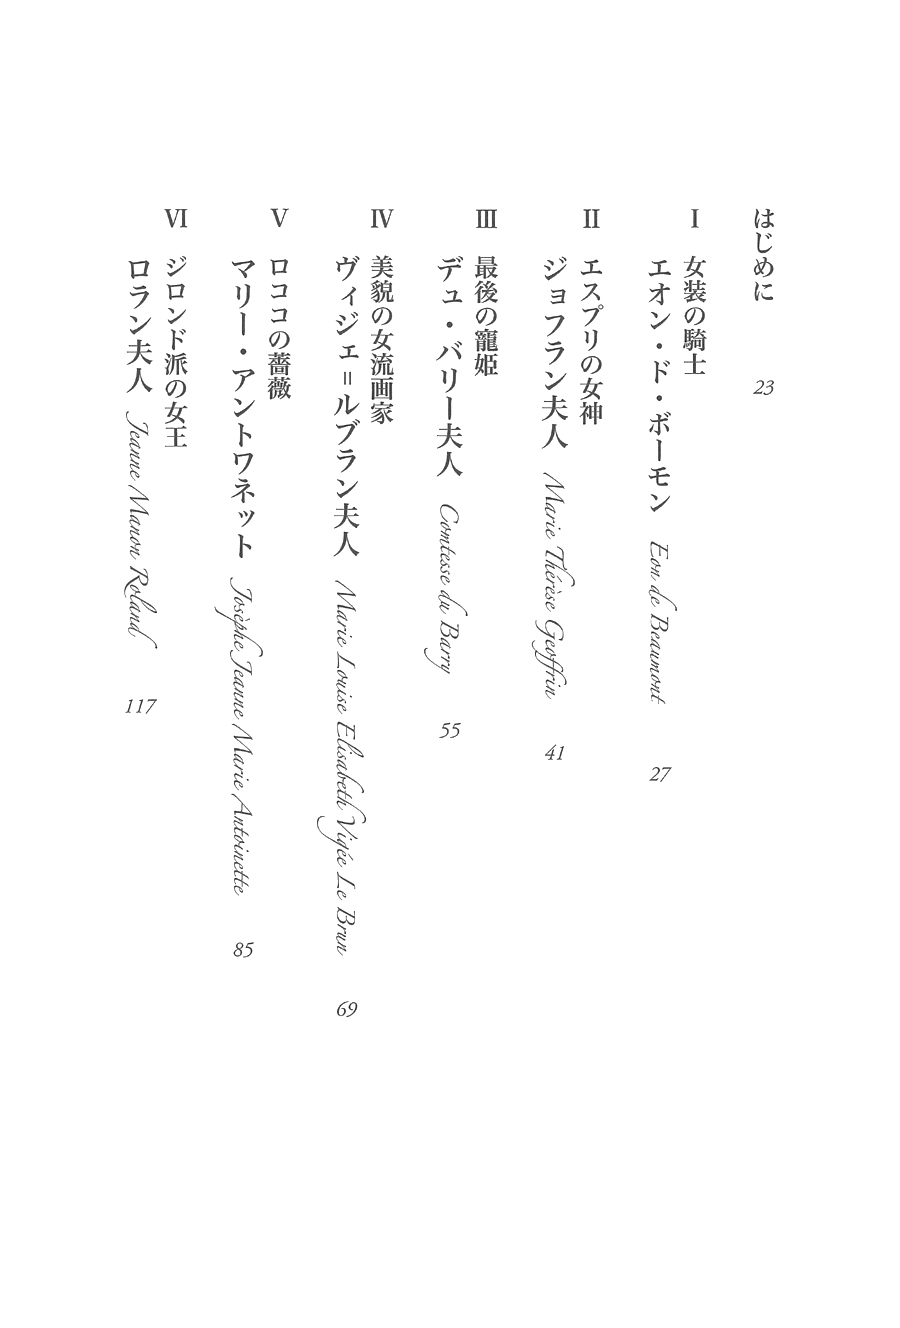 はじめに 23
Ⅰ 女装の騎士
エオン・ド・ボーモン Eon de Beaumont 27
Ⅱ エスプリの女神
ジョフラン夫人 Marie Thérèse Geoffrin 41
Ⅲ 最後の寵姫
デュ・バリー夫人 Comtesse du Barry 55
Ⅳ 美貌の女流画家
ヴィジェ=ルブラン夫人 Marie Louise Elisabeth Vigée Le Brun 69
Ⅴ ロココの薔薇
マリー・アントワネット Josèphe Jeanne Marie Antoinette 85
Ⅵ ジロンド派の女王
ロラン夫人 Jeanne Manon Roland 117